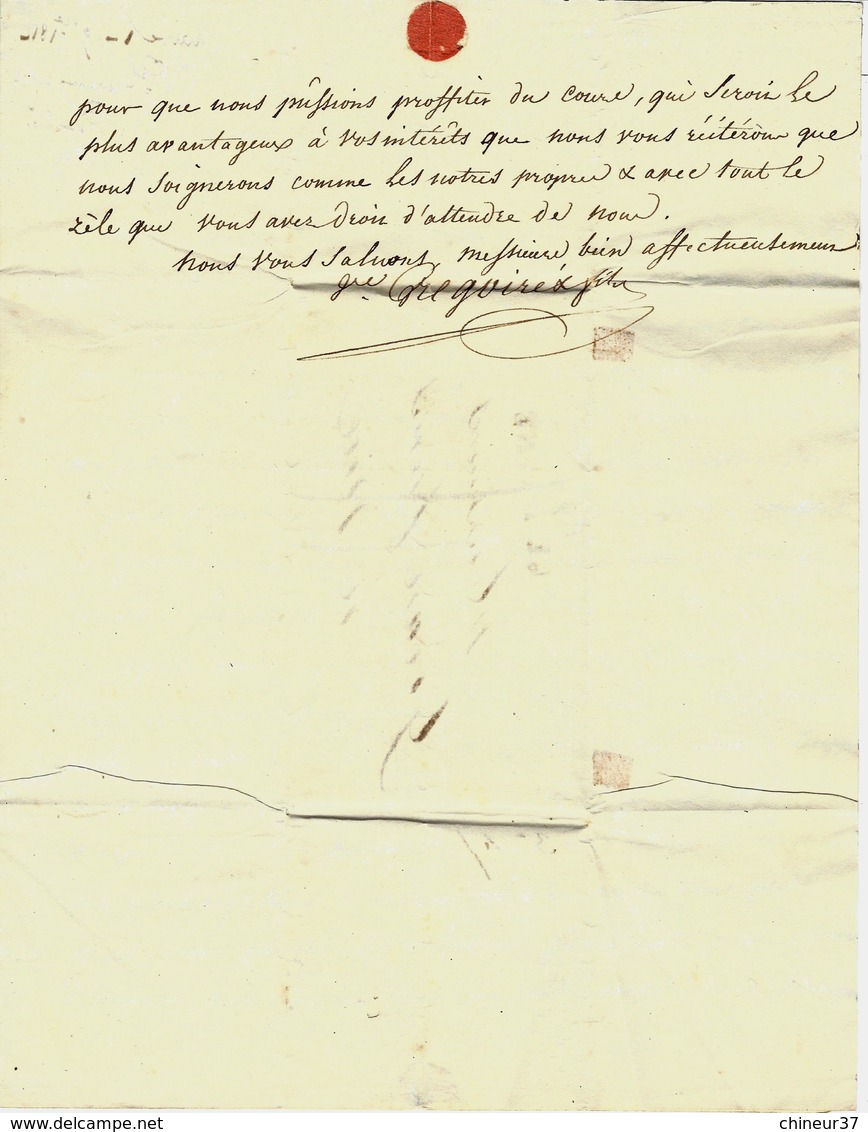 pour que nous pûssions proffiter du cours, qui seroit le
plus avantageux à vos intérêts que nous vous réitérons que
nous soignerons comme les notres propres & avec tout le
zèle que vous avez droit d'attendre de nous.
Nous vous saluons, messieurs bien affectueusement
Gregoire & fils
delcampe.net
chineur37